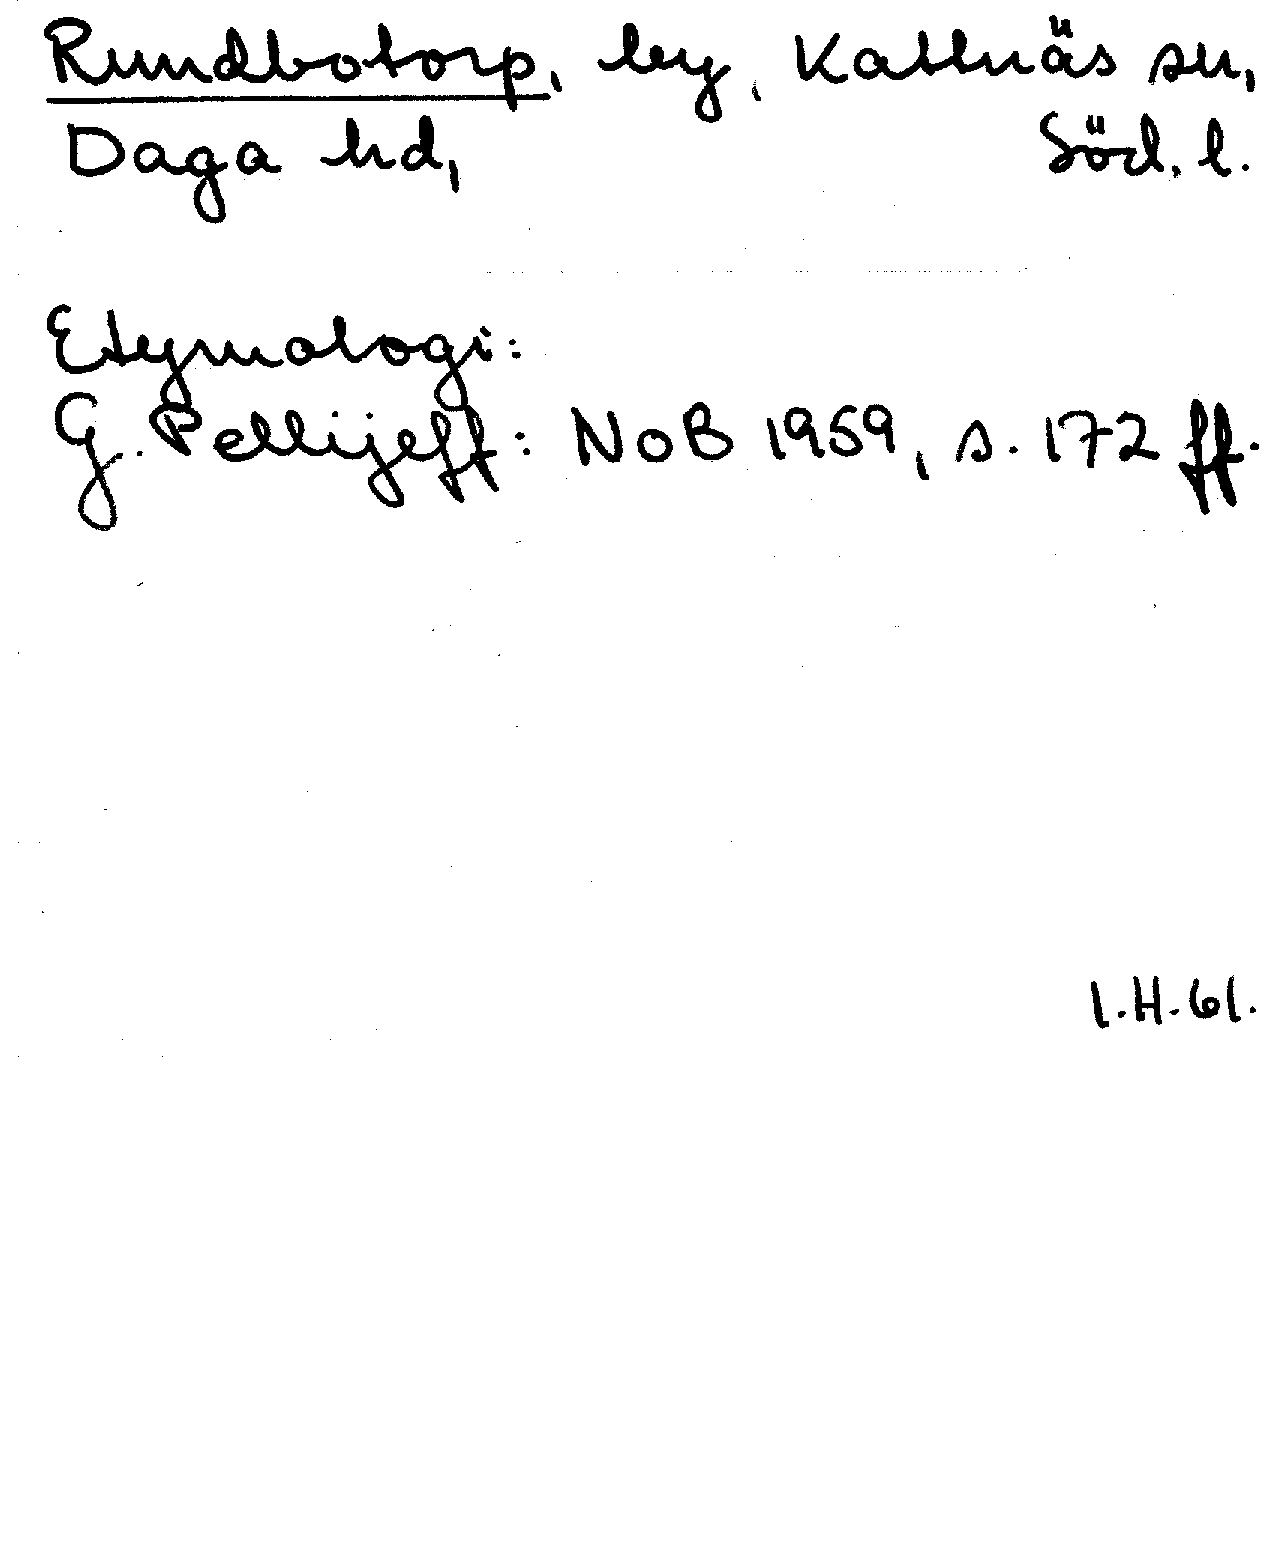 Rundbotorp, by, Kattnäs sn,
Daga hd, Söd. l.
Etymologi:
G. Pellijeff: NoB 1959, s. 172 ff.
I.H.61.